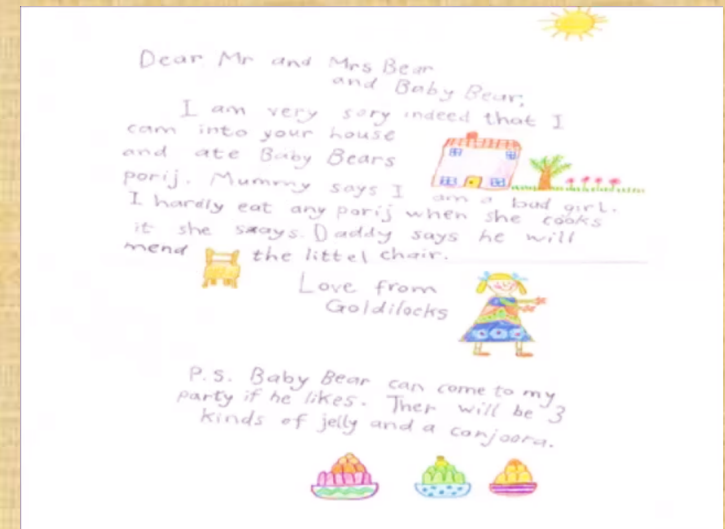 Dear Mr and Mrs Bear
and Baby Bear,
I am very sory indeed that I
cam into your house
and ate Baby Bears
porij. Mummy says I am a bad girl.
I hardly eat any porij when she cooks
it she saays. Daddy says he will
mend the littel chair.
Love from
Goldilocks
P.S. Baby Bear can come to my
party if he likes. Ther will be 3
kinds of jelly and a conjoora.